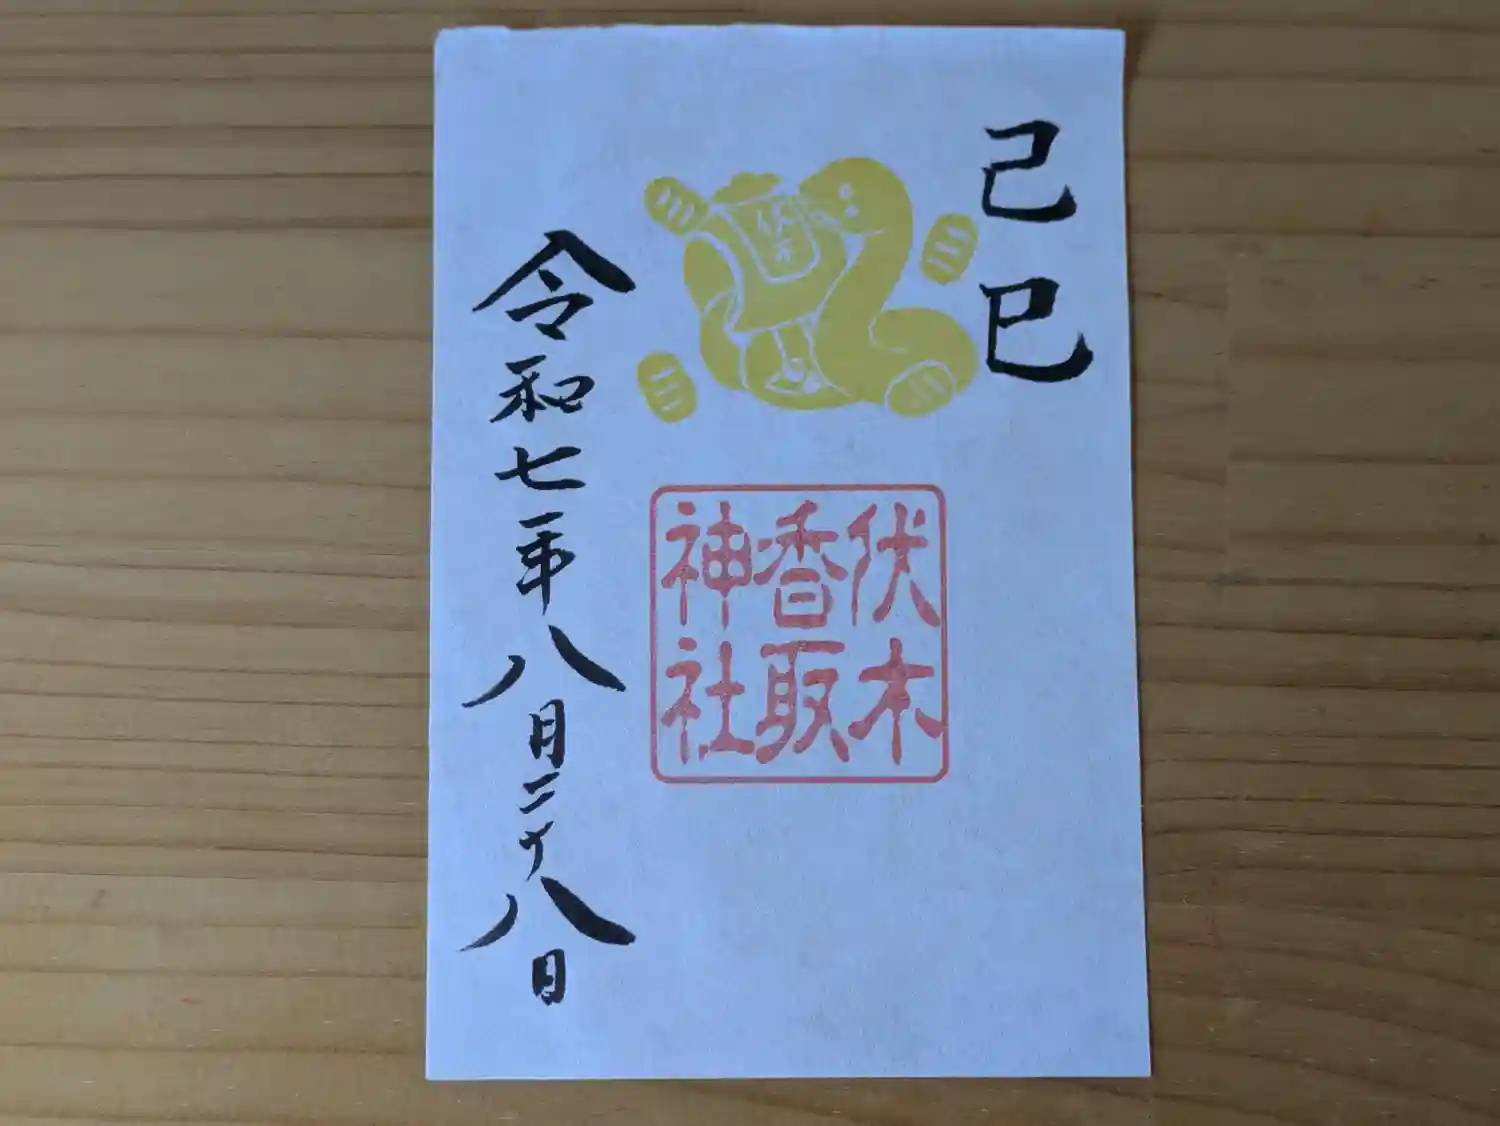 己巳
伏木
伏木
香取
神社
令和七年八月二十八日